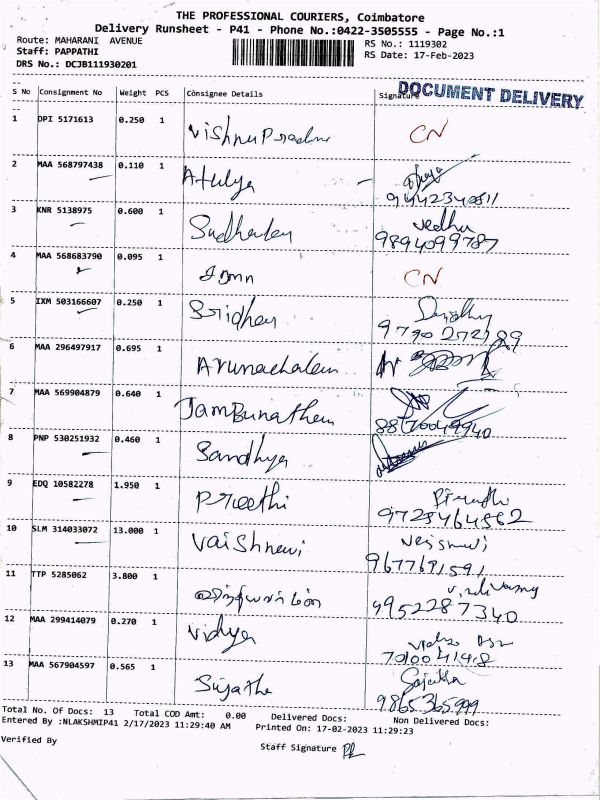 THE PROFESSIONAL COURIERS, Coimbatore
Delivery Runsheet - P41 - Phone No.:0422-3505555 - Page No.:1
Route: MAHARANI AVENUE RS No.: 1119302
Staff: PAPPATHI RS Date: 17-Feb-2023
DRS No.: DCJB111930201
DOCUMENT DELIVERY
S No Consignment No Weight PCS Consignee Details Signature
1 DPI 5171613 0.250 1 Vishnu CN
2 MAA 568797438 0.110 1 Atulya
3 KNR 5138975 0.600 1
9894099787
4 MAA 568683790 0.095 1 CN
5 IXM 503166607 0.250 1 Sridhar
6 MAA 296497917 0.695 1 Arunachalam
7 MAA 569904879 0.640 1 Jambunathen
8 PNP 530251932 0.460 1 Sandhya
9 EDQ 10582278 1.950 1 Preethi
10 SLM 314033072 13.000 1 Vaishnavi
9677691591
11 TTP 5285062 3.800 1
9952287340
12 MAA 299414079 0.270 1 Vidhya
13 MAA 567904597 0.565 1 Sujatha
9865365999
Total No. Of Docs: 13 Total COD Amt: 0.00 Delivered Docs: Non Delivered Docs:
Entered By :NLAKSHMIP41 2/17/2023 11:29:40 AM Printed On: 17-02-2023 11:29:23
Verified By Staff Signature